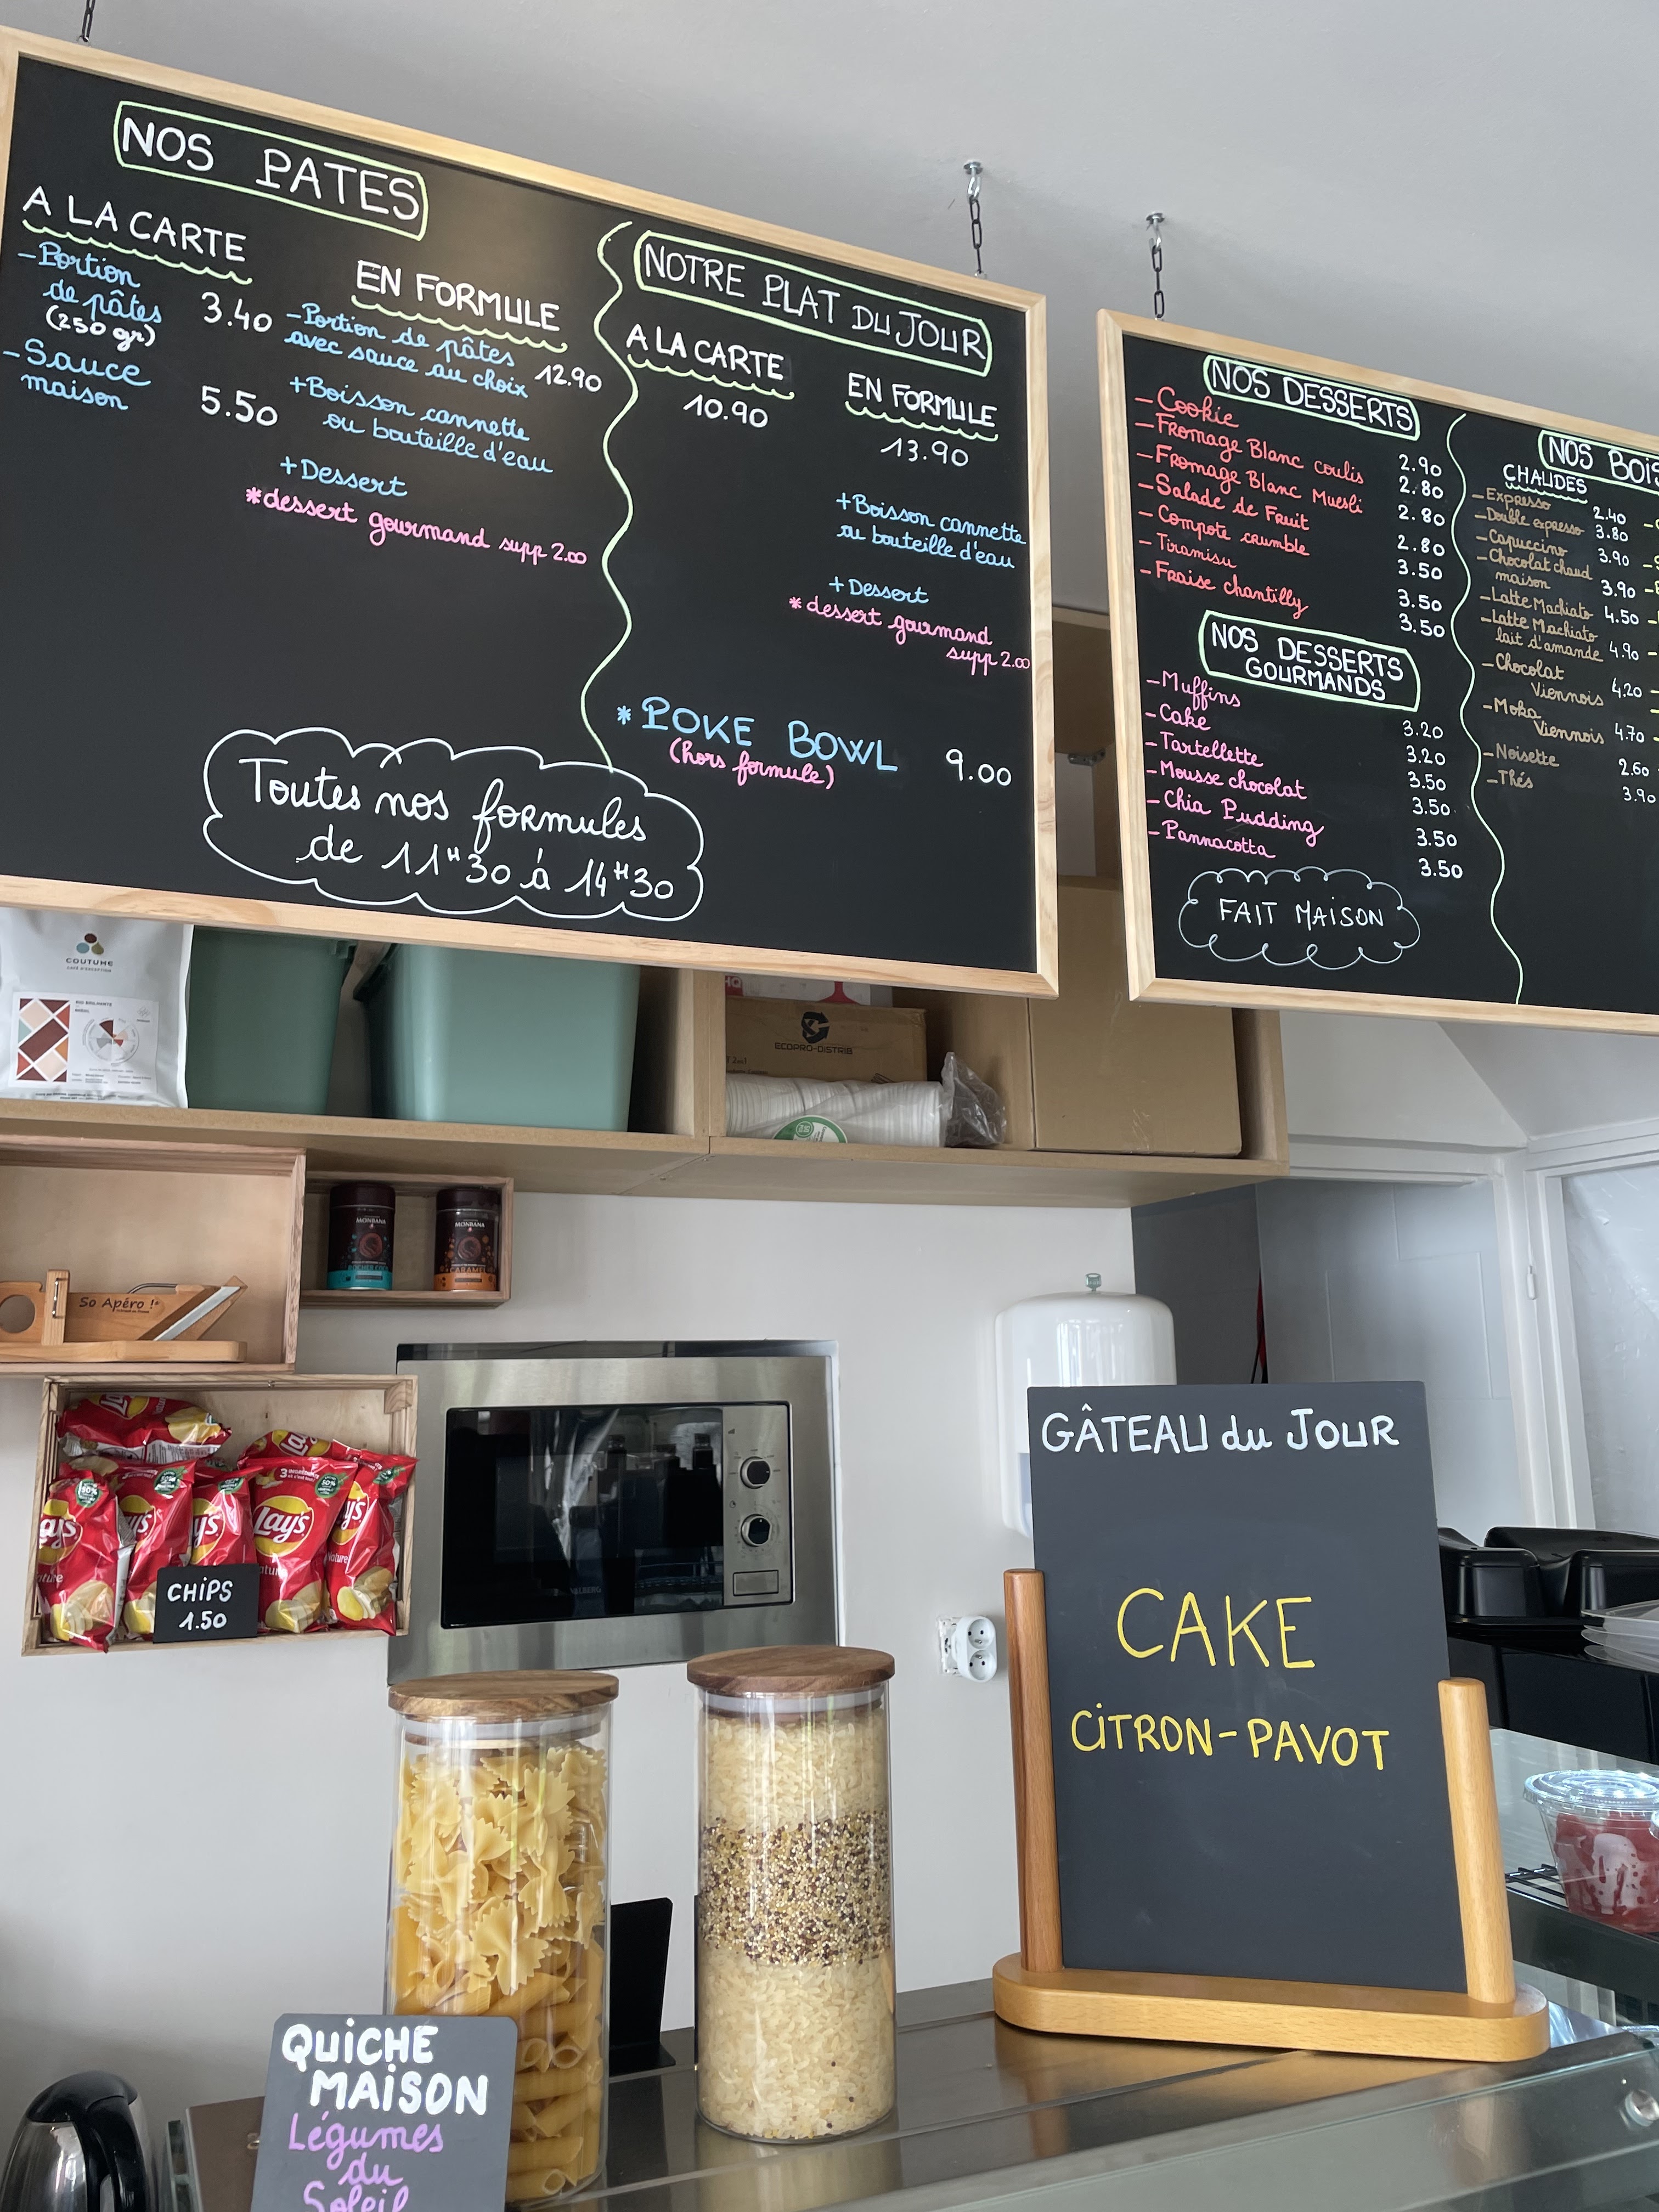 NOS PATES
A LA CARTE
-Portion
de pâtes
(250 gr)
3.40
-Sauce
maison
5.50
EN FORMULE
-Portion de pâtes
avec sauce au choix
12.90
+Boisson cannette
ou bouteille d'eau
+Dessert
*dessert gourmand supp 2.00
NOTRE PLAT DU JOUR
A LA CARTE
10.90
EN FORMULE
13.90
+Boisson cannette
ou bouteille d'eau
+Dessert
*dessert gourmand
supp 2.00
* POKE BOWL
(hors formule)
9.00
Toutes nos formules
de 11H30 à 14H30
NOS DESSERTS
-Cookie 2.90
-Fromage Blanc coulis 2.80
-Fromage Blanc Muesli 2.80
-Salade de Fruit 2.80
-Compote crumble 3.50
-Tiramisu 3.50
-Fraise chantilly 3.50
NOS DESSERTS
GOURMANDS
-Muffins 3.20
-Cake 3.20
-Tartellette 3.50
-Mousse chocolat 3.50
-Chia Pudding 3.50
-Pannacotta 3.50
FAIT MAISON
NOS
CHAUDES
-Expresso 2.40
-Double expresso 3.80
-Capuccino 3.90
-Chocolat chaud
maison 3.90
-Latte Machiato 4.50
-Latte Machiato
lait d'amande 4.90
-Chocolat
Viennois 4.20
-Moka
Viennois 4.70
-Noisette 2.60
-Thés 3.90
COUTUME
CAFÉ D'EXCEPTION
ECOPRO-DISTRIB
MONBANA
MONBANA
CARAMEL
So Apéro !
Lay's
Nature
CHIPS
1.50
GÂTEAU du JOUR
CAKE
CITRON-PAVOT
QUICHE
MAISON
Légumes
du
Soleil